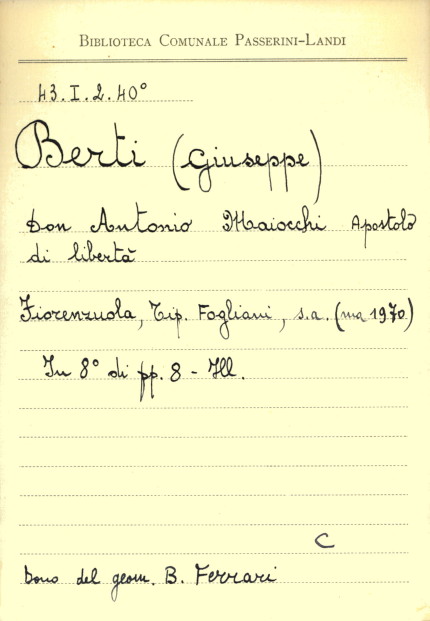 BIBLIOTECA COMUNALE PASSERINI-LANDI
43.I.2.40°
Berti (Giuseppe)
Don Antonio Maiocchi Apostolo
di libertà
Fiorenzuola, Tip. Fogliani, s.a. (ma 1970)
In 8° di pp. 8 - Ill.
C
Dono del geom. B. Ferrari